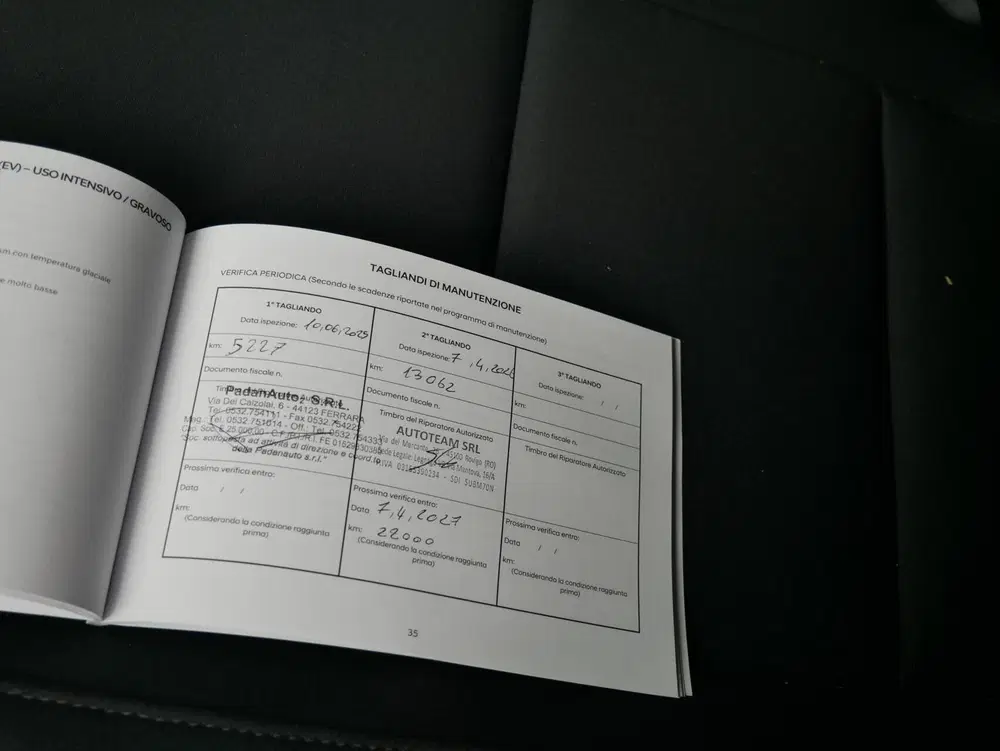 (EV) – USO INTENSIVO / GRAVOSO
con temperatura glaciale
e molto basse
TAGLIANDI DI MANUTENZIONE
VERIFICA PERIODICA (Secondo le scadenze riportate nel programma di manutenzione)
1° TAGLIANDO
Data ispezione: 10,06,2025
km: 5227
Documento fiscale n.
PadanAuto, S.R.L.
Via Dei Calzolai, 6 - 44123 FERRARA
Tel. 0532.754111 - Fax 0532.754222
Mag.: Tel. 0532.751014 - Off.: Tel. 0532.754333
Cap. Soc. € 25.000,00 - C.F./P.I./R.I. FE
"Soc. sottoposta ad attività di direzione e coord.to
della Padanauto s.r.l."
Prossima verifica entro:
Data / /
km:
(Considerando la condizione raggiunta
prima)
2° TAGLIANDO
Data ispezione: 7,4,2026
km: 13062
Documento fiscale n.
Timbro del Riparatore Autorizzato
AUTOTEAM SRL
Via del Mercante 45100 Rovigo (RO)
Sede Legale: Legnago Mantova,
P.IVA - SDI SUBM70N
Prossima verifica entro:
Data 7,4,2027
km: 22000
(Considerando la condizione raggiunta
prima)
3° TAGLIANDO
Data ispezione: / /
km:
Documento fiscale n.
Timbro del Riparatore Autorizzato
Prossima verifica entro:
Data / /
km:
(Considerando la condizione raggiunta
prima)
35